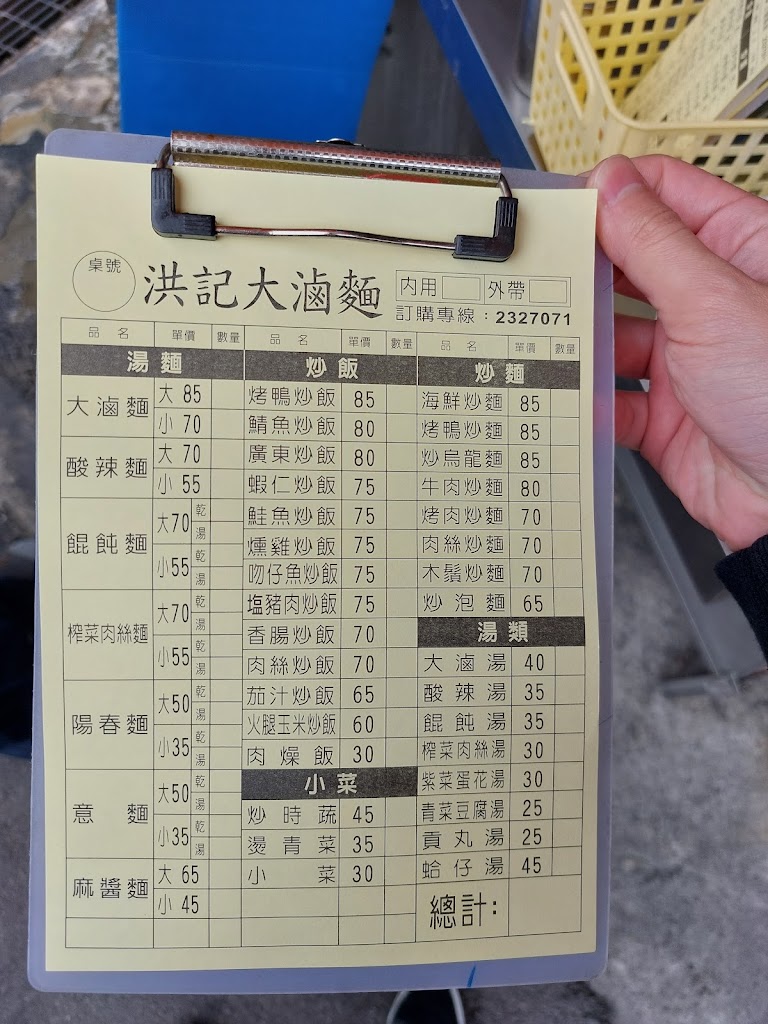 桌號
洪記大滷麵
內用 外帶
訂購專線：2327071
品名 單價 數量
湯麵
大滷麵 大 85
小 70
酸辣麵 大 70
小 55
餛飩麵 大70 乾 湯
小55 乾 湯
榨菜肉絲麵 大70 乾 湯
小55 乾 湯
陽春麵 大50 乾 湯
小35 乾 湯
意麵 大50 乾 湯
小35 乾 湯
麻醬麵 大 65
小 45
品名 單價 數量
炒飯
烤鴨炒飯 85
鯖魚炒飯 80
廣東炒飯 80
蝦仁炒飯 75
鮭魚炒飯 75
燻雞炒飯 75
吻仔魚炒飯 75
塩豬肉炒飯 75
香腸炒飯 70
肉絲炒飯 70
茄汁炒飯 65
火腿玉米炒飯 60
肉燥飯 30
小菜
炒時蔬 45
燙青菜 35
小菜 30
品名 單價 數量
炒麵
海鮮炒麵 85
烤鴨炒麵 85
炒烏龍麵 85
牛肉炒麵 80
烤肉炒麵 70
肉絲炒麵 70
木鬚炒麵 70
炒泡麵 65
湯類
大滷湯 40
酸辣湯 35
餛飩湯 35
榨菜肉絲湯 30
紫菜蛋花湯 30
青菜豆腐湯 25
貢丸湯 25
蛤仔湯 45
總計: